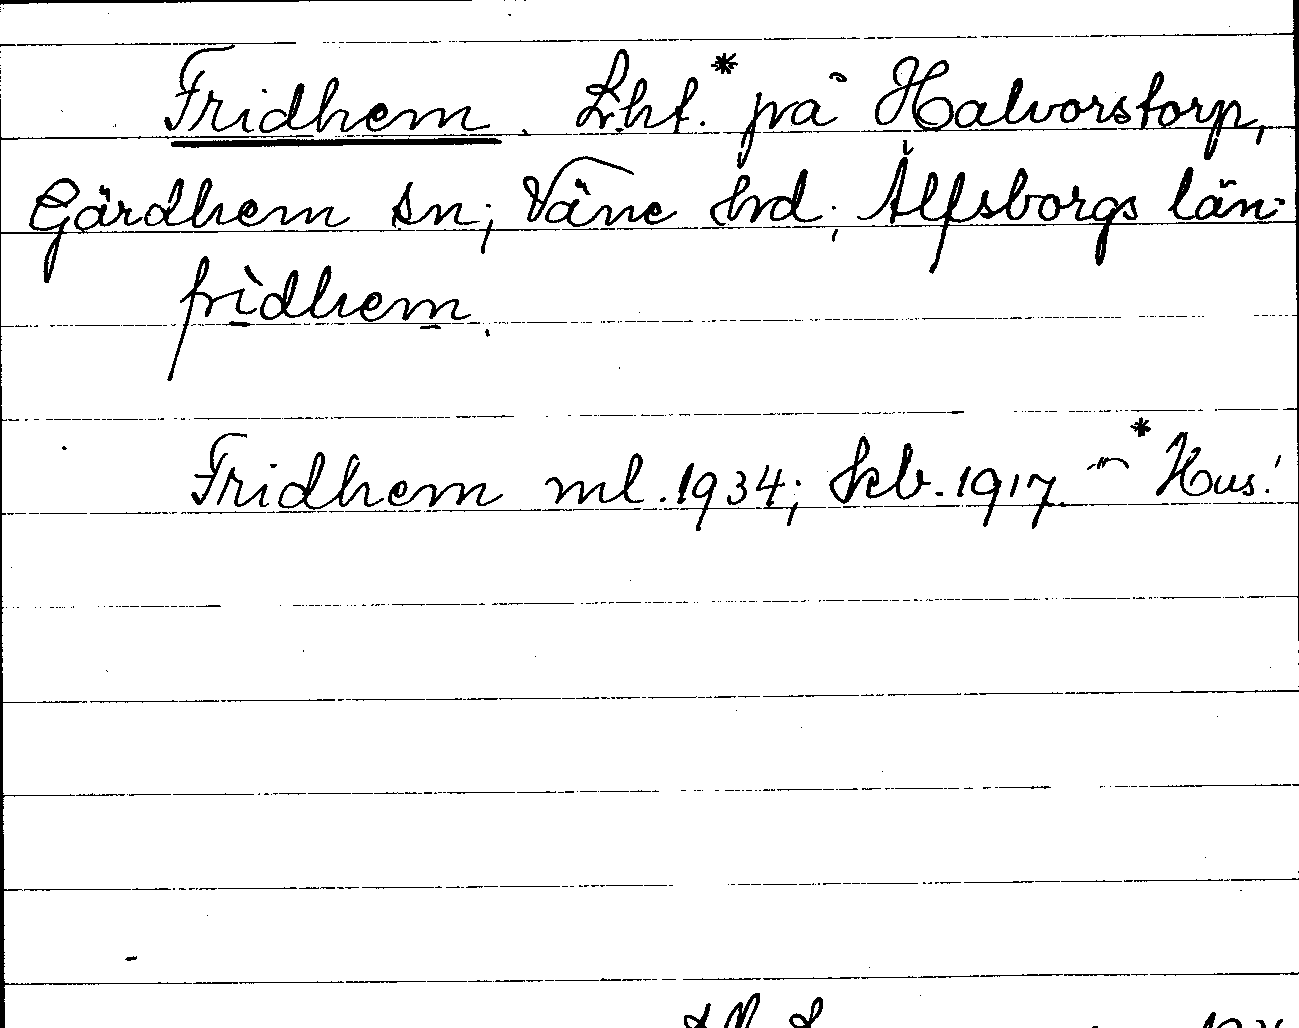 Fridhem. Lht.* på Halvorstorp,
Gärdhem sn; Väne hd; Älfsborgs län.
frìdhem.
Fridhem ml. 1934; Jeb. 1917. — * Hus!